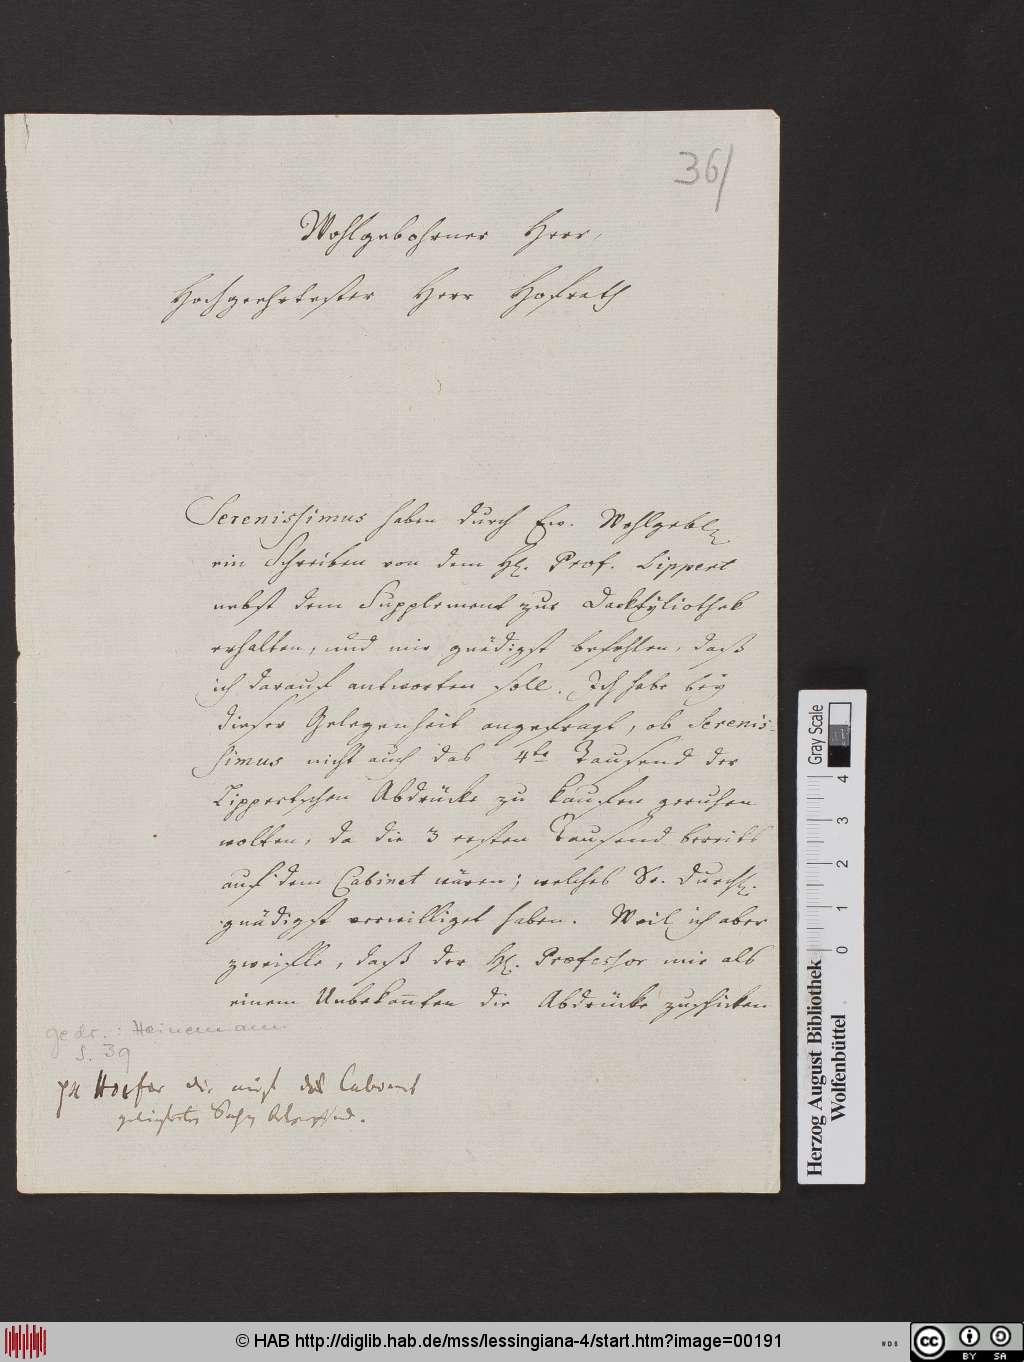 36/
Wohlgebohrner Herr,
Hochgeehrtester Herr Hofrath
Serenissimus haben durch Ew. Wohlgebl.
ein Schreiben von dem H. Prof. Lippert
nebst dem Supplement zur Dacktyliothek
erhalten, und mir gnädigst befohlen, daß
ich darauf antworten soll. Ich habe bey
dieser Gelegenheit angefragt, ob Serenis-
simus nicht auch das 4te Tausend der
Lippertschen Abdrücke zu kaufen geruhen
wolten, da die 3 ersten Tausend bereits
auf dem Cabinet wären; welches Sr. Durchl.
gnädigst verwilliget haben. Weil ich aber
zweifle, daß der H. Professor mir als
einem Unbekannten die Abdrücke zuschicken
gedr.: Heinemann
S. 39
die Cabinet
Herzog August Bibliothek
Wolfenbüttel
Gray Scale
0 1 2 3 4
© HAB http://diglib.hab.de/mss/lessingiana-4/start.htm?image=00191
WDB
cc BY SA